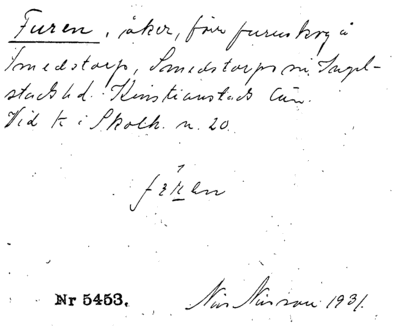 Furen, åker, förr furuskog å
Smedstorp, Smedstorps sn. Ingel-
stads hd. Kristianstads län.
Vid k i Skolh. n. 20.
Nr 5453.
Nils Nilsson 1931.